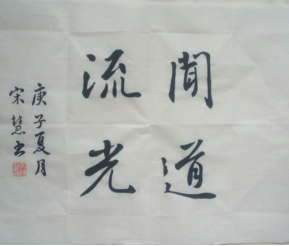 聞道
流光
庚子夏月
宋慧书